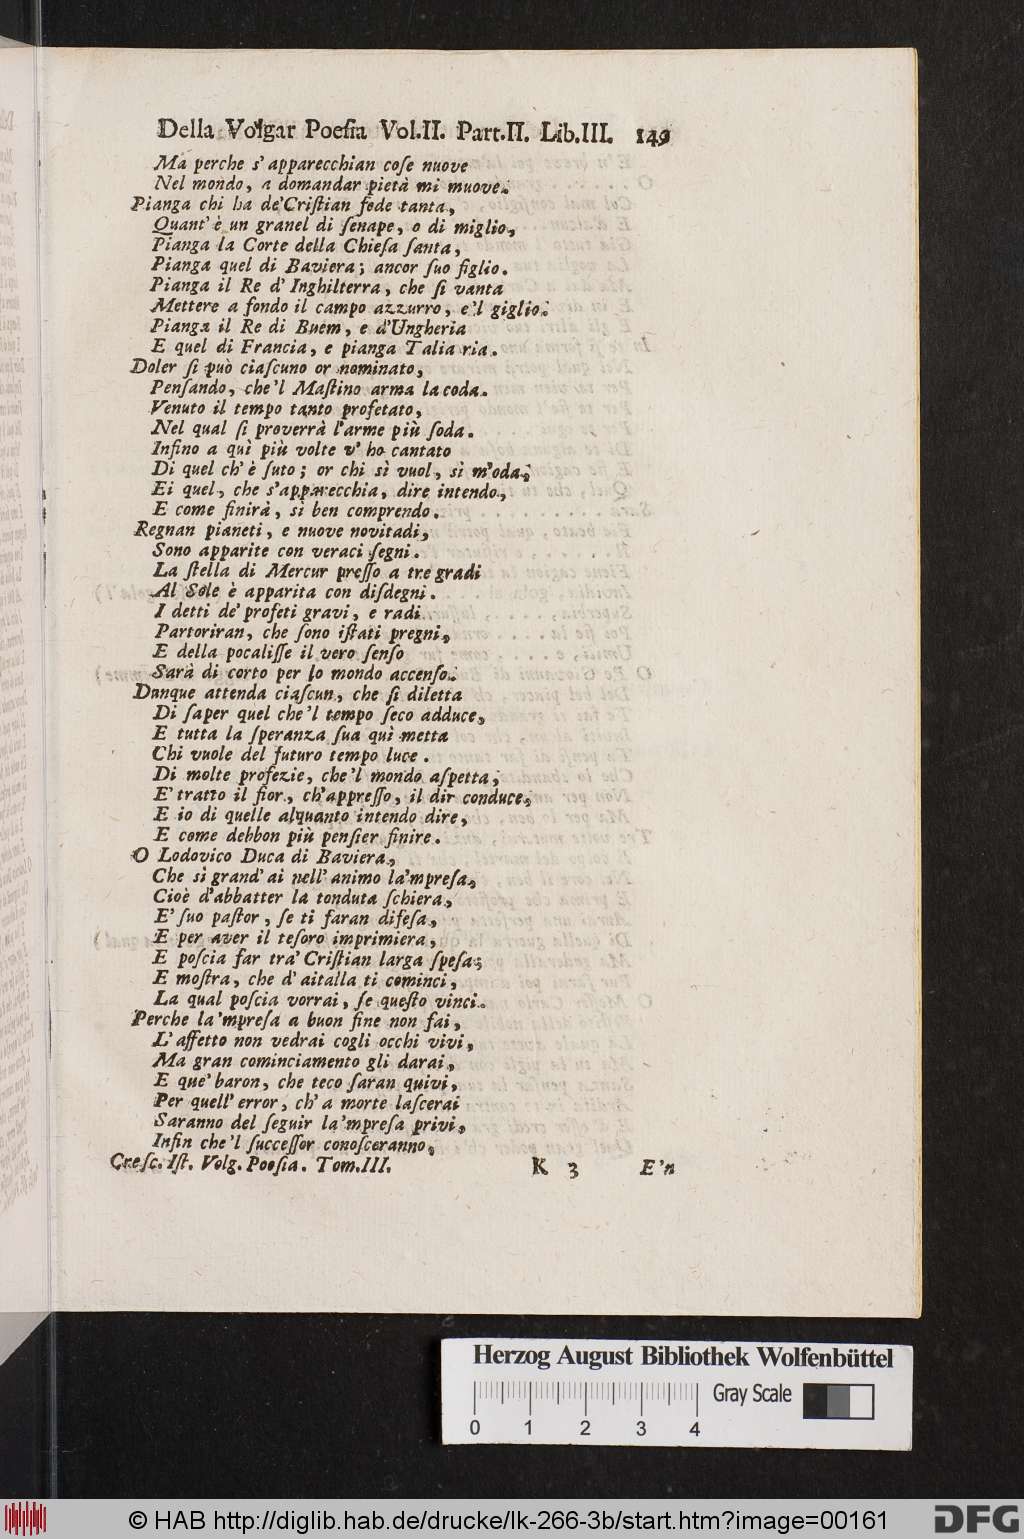 Della Volgar Poesia Vol.II. Part.II. Lib.III. 149
Ma perche s'apparecchian cose nuove
Nel mondo, a domandar pietà mi muove.
Pianga chi ha de'Cristian fede tanta,
Quant'è un granel di senape, o di miglio,
Pianga la Corte della Chiesa santa,
Pianga quel di Baviera; ancor suo figlio.
Pianga il Re d'Inghilterra, che si vanta
Mettere a fondo il campo azzurro, e'l giglio.
Pianga il Re di Buem, e d'Ungheria
E quel di Francia, e pianga Talia ria.
Doler si può ciascuno or nominato,
Pensando, che'l Mastino arma la coda.
Venuto il tempo tanto profetato,
Nel qual si proverrà l'arme più soda.
Infino a quì più volte v'ho cantato
Di quel ch'è suto; or chi sì vuol, sì m'oda,
Ei quel, che s'apparecchia, dire intendo,
E come finirà, sì ben comprendo.
Regnan pianeti, e nuove novitadi,
Sono apparite con veraci segni.
La stella di Mercur presso a tre gradi
Al Sole è apparita con disdegni.
I detti de'profeti gravi, e radi
Partoriran, che sono istati pregni,
E della pocalisse il vero senso
Sarà di corto per lo mondo accenso.
Dunque attenda ciascun, che si diletta
Di saper quel che'l tempo seco adduce,
E tutta la speranza sua quì metta
Chi vuole del futuro tempo luce.
Di molte profezie, che'l mondo aspetta,
E' tratto il fior, ch'appresso, il dir conduce,
E io di quelle alquanto intendo dire,
E come debbon più pensier finire.
O Lodovico Duca di Baviera,
Che sì grand'ai nell'animo la'mpresa,
Cioè d'abbatter la tonduta schiera,
E' suo pastor, se ti faran difesa,
E per aver il tesoro imprimiera,
E poscia far tra' Cristian larga spesa;
E mostra, che d'aitalla ti cominci,
La qual poscia vorrai, se questo vinci.
Perche la'mpresa a buon fine non fai,
L'affetto non vedrai cogli occhi vivi,
Ma gran cominciamento gli darai,
E que' baron, che teco saran quivi,
Per quell'error, ch'a morte lascerai
Saranno del seguir la'mpresa privi,
Infin che'l successor conosceranno,
Cresc. Ist. Volg. Poesia. Tom.III. K 3 E'n
Herzog August Bibliothek Wolfenbüttel
Gray Scale
0 1 2 3 4
© HAB http://diglib.hab.de/drucke/lk-266-3b/start.htm?image=00161
DFG